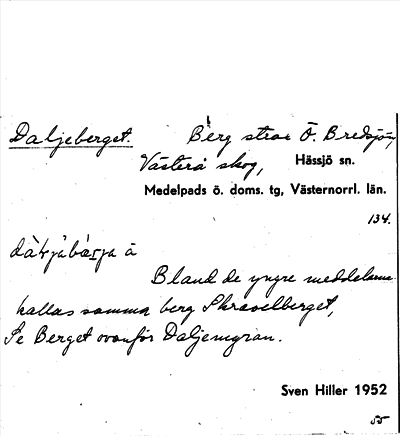 Daljeberget. Berg strax Ö. Bredsjön,
Västerå skog, Hässjö sn.
Medelpads ö. doms. tg, Västernorrl. län.
134.
Bland de yngre meddelarne
kallas samma berg Skravelberget,
Se Berget ovanför Daljemyran.
Sven Hiller 1952